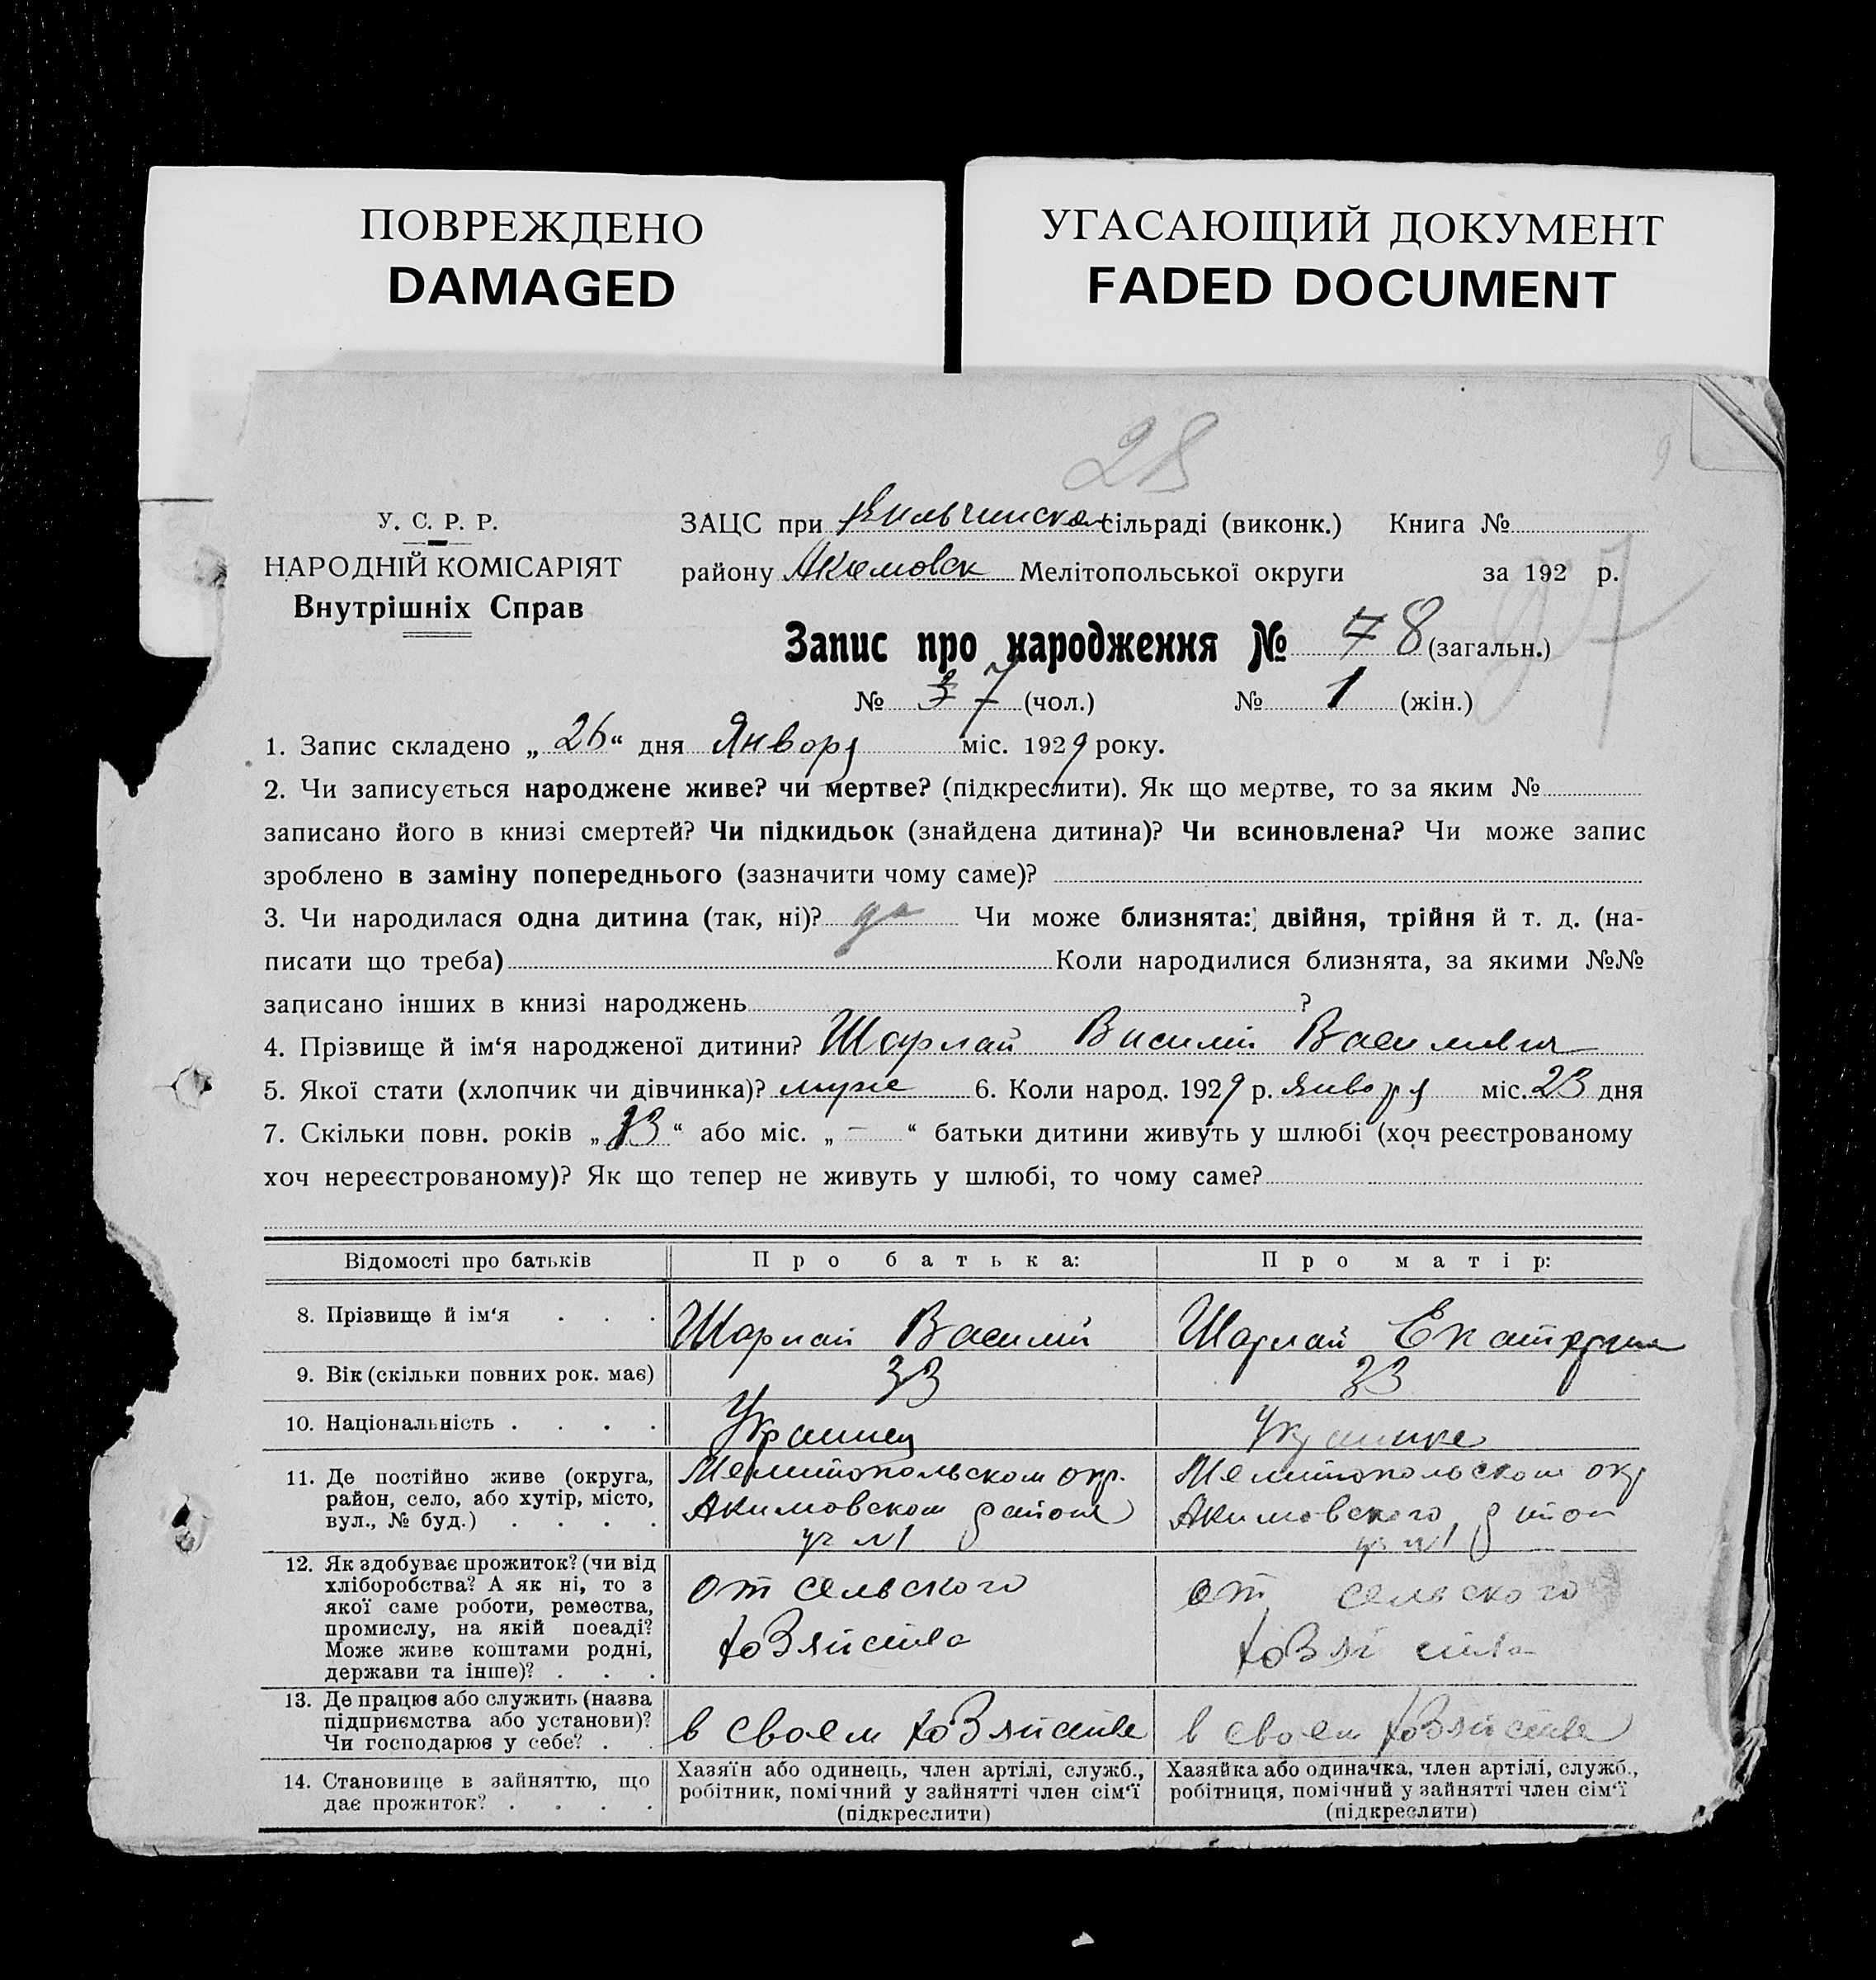 ПОВРЕЖДЕНО
DAMAGED
УГАСАЮЩИЙ ДОКУМЕНТ
FADED DOCUMENT
28
9
У. С. Р. Р.
НАРОДНІЙ КОМІСАРІЯТ
Внутрішніх Справ
ЗАЦС при сільраді (виконк.) Книга №
району Акимовск Мелітопольської округи за 192 р.
97
Запис про народження № 8 (загальн.)
№ 7 (чол.) № 1 (жін.)
1. Запис складено „ 26 “ дня Январ міс. 1929 року.
2. Чи записується народжене живе? чи мертве? (підкреслити). Як що мертве, то за яким №
записано його в книзі смертей? Чи підкидьок (знайдена дитина)? Чи всиновлена? Чи може запис
зроблено в заміну попереднього (зазначити чому саме)?
3. Чи народилася одна дитина (так, ні)? да Чи може близнята: двійня, трійня й т. д. (на-
писати що треба) Коли народилися близнята, за якими №№
записано інших в книзі народжень ?
4. Прізвище й ім‘я народженої дитини? Шарлай Василий Василивич
5. Якої стати (хлопчик чи дівчинка)? муже 6. Коли народ. 1929 р. января міс. 23 дня
7. Скільки повн. років „ 13 “ або міс. „ – “ батьки дитини живуть у шлюбі (хоч реєстрованому
хоч нереєстрованому)? Як що тепер не живуть у шлюбі, то чому саме?
Відомості про батьків
Про батька:
Про матір:
8. Прізвище й ім‘я . . .
Шарлай Василий
Шарлай Екатерина
9. Вік (скільки повних рок. має)
33
33
10. Національність . . . .
Украинец
Украинке
11. Де постійно живе (округа,
район, село, або хутір, місто,
вул., № буд.) . . . .
Мелитопольском окр.
Акимовском район
уч №1
Мелитопольском окр
Акимовского район
уч №1
12. Як здобуває прожиток? (чи від
хліборобства? А як ні, то з
якої саме роботи, ремества,
промислу, на якій посаді?
Може живе коштами родні,
держави та інше)? . . .
от сельского
хозяйства
от сельского
хозяйства
13. Де працює або служить (назва
підприємства або установи)?
Чи господарює у себе? . .
в своем хозяйстве
в своем хозяйстве
14. Становище в зайняттю, що
дає прожиток? . . . .
Хазяїн або одинець, член артілі, служб.,
робітник, помічний у зайнятті член сім‘ї
(підкреслити)
Хазяйка або одиначка, член артілі, служб.,
робітниця, помічний у зайнятті член сім‘ї
(підкреслити)